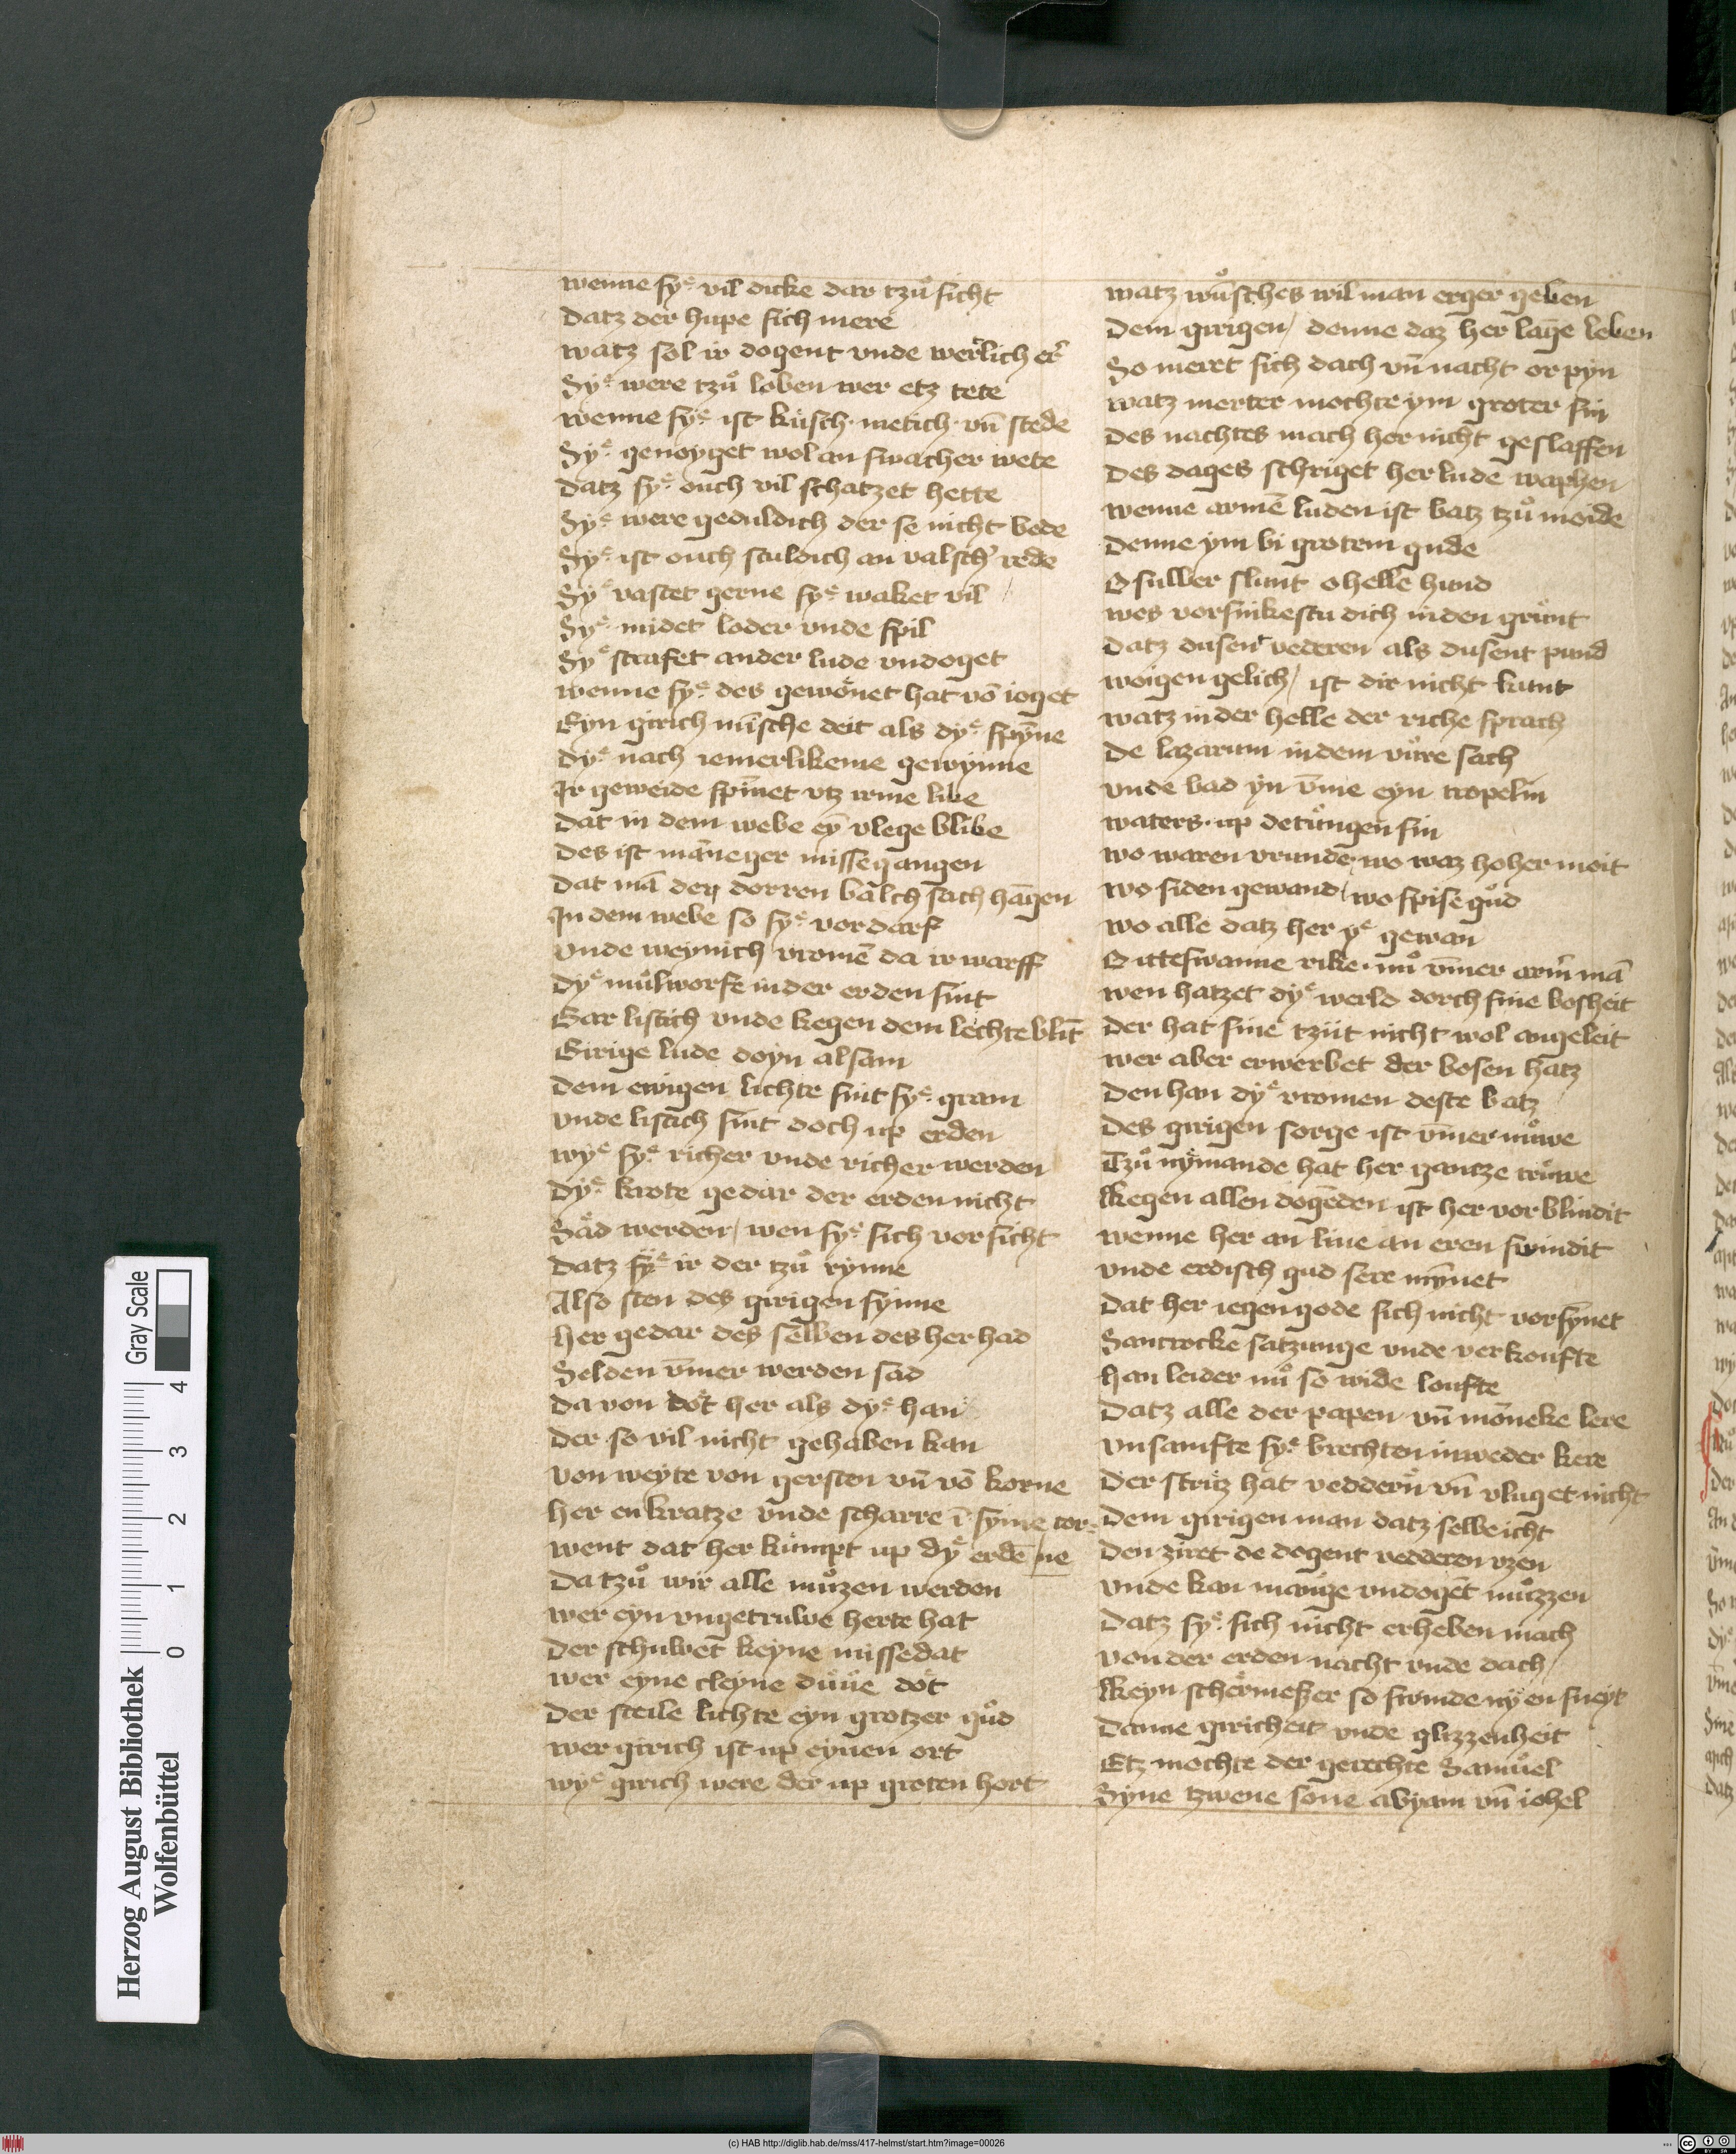 wenne syͤ vil dicke dar tzuͦ sicht
Datz der hupe sich mere
watz sol ir dogent vnde werlich er̄
Syͤ were tzuͦ loben wer etz tete
wenne syͤ ist kuͤsch · metich · vn̄ stede
Syͤ genoyget wol an swacher wete
Datz syͤ ouch vil schatzet hette
Syͤ were geduldich der se nicht bede
Syͤ ist ouch sculdich an valsch̛ rede
Syͤ vastet gerne syͤ waket vil
Syͤ midet loder vnde spil
Syͤ strafet ander lude vndoget
wenne syͤ des gewoͤnet hat vō ioget
Eyn girich mīsche deit als dyͤ spyn̄e
Dyͤ nach iemerlikeme gewynne
Ir geweide spīnet vtz irme libe
Dat in dem webe eȳ vlege blibe
Des ist māneger missegangen
Dat mā den dorren balch sach hāgen
In dem webe so syͤ vordarf
Vnde weynich vromē da ir warff
Dyͤ muͦlworfe in der erden sint
Gar listich vnde kegen dem lechte blīt
Girige lude doyn alsam
Dem ewigen lichte sint syͤ gram
Vnde listich sint doch up erden
wyͤ syͤ richer vnde richer werden
Dyͤ krote gedar der erden nicht
Sād werden / wen syͤ sich vorsicht
Datz syͤ ir der tzuͦ rynne
Also sten des girigen synne
Her gedar des selben des her had
Selden v̄mer werden sad
Da von doͤt her als dyͤ han
Der so vil nicht gehaben kan
Von weyte von gersten vn̄ vō korne
Her en kratze vnde scharre ī syme tor-
went dat her kuͤmpt up dyͤ erdē / ne
Da tzuͦ wir alle muͦzen werden
wer eyn vngetruwe herte hat
Der schuwet keyne missedat
wer eyne cleyne duͤuͤe doͤt
Der steile lichte eyn grotzer guͦd
wer girich ist up eynen ort
wyͤ girich were der up groten hort
watz wuͦsches wil man erger geben
Dem girigen / denne daz her lāge leben
So meret sich dach vn̄ nacht or pyn
watz merter mochte ym groter sin
Des nachtes mach her nicht geslaffen
Des dages schriget her lude waphen
wenne armē luden ist batz tzuͦ moide
Denne ym bi grotem gude
O sulber slunt o helle hund
wes vorsinkestu dich in den gruͤnt
Datz dusent vederen als dusent pund
woigen gelich / ist dir nicht kunt
watz in der helle der riche sprach
De lazarum in dem vuͤre sach
Vnde bad yn v̄me eyn tropelin
waters · up de tuͤngen sin
wo waren vrunde · wo waz hoher moit
wo siden gewand / wo spise guͦd
wo alle datz her yͤ gewan
O itteswanne rike · nuͦ v̄mer arm̄ mā
wen hatzet dyͤ werld dorch sine bosheit
Der hat sine tzijt nicht wol angeleit
wer aber erwerbet der bosen hatz
Den han dyͤ vromen deste batz
Des girigen sorge ist v̄mer nuͤwe
Tzuͦ nyͤmande hat her gantze truͤwe
Kegen allen dogēden ist her vorblindit
wenne her an liue an eren swindit
Vnde erdisch gud sere mȳnet
Dat her iegen gode sich nicht vorsȳnet
Santrocke satzunge vnde verkoufte
Han leider nuͦ so wide loufte
Datz alle der papen vn̄ moͤneke lere
Vnsamfte syͤ brechten in weder kere
Der struͤtz hat vedderū vn̄ vluget nicht
Dem girigen man datz selbe icht
Den ziret de dogent vedderen vzen
Vnde kan manige vndogēt muͦzzen
Datz syͤ sich nicht erheben mach
Von der erden nacht vnde dach
Keyn scheͤrmeszer so swinde nyͤ en sneyt
Danne giricheit vnde glizzenheit
Etz mochte der gerechte Samuͦel
Syne tzwene sone abyam vn̄ iohel
Herzog August Bibliothek
Wolfenbüttel
Gray Scale
0 1 2 3 4
(c) HAB http://diglib.hab.de/mss/417-helmst/start.htm?image=00026